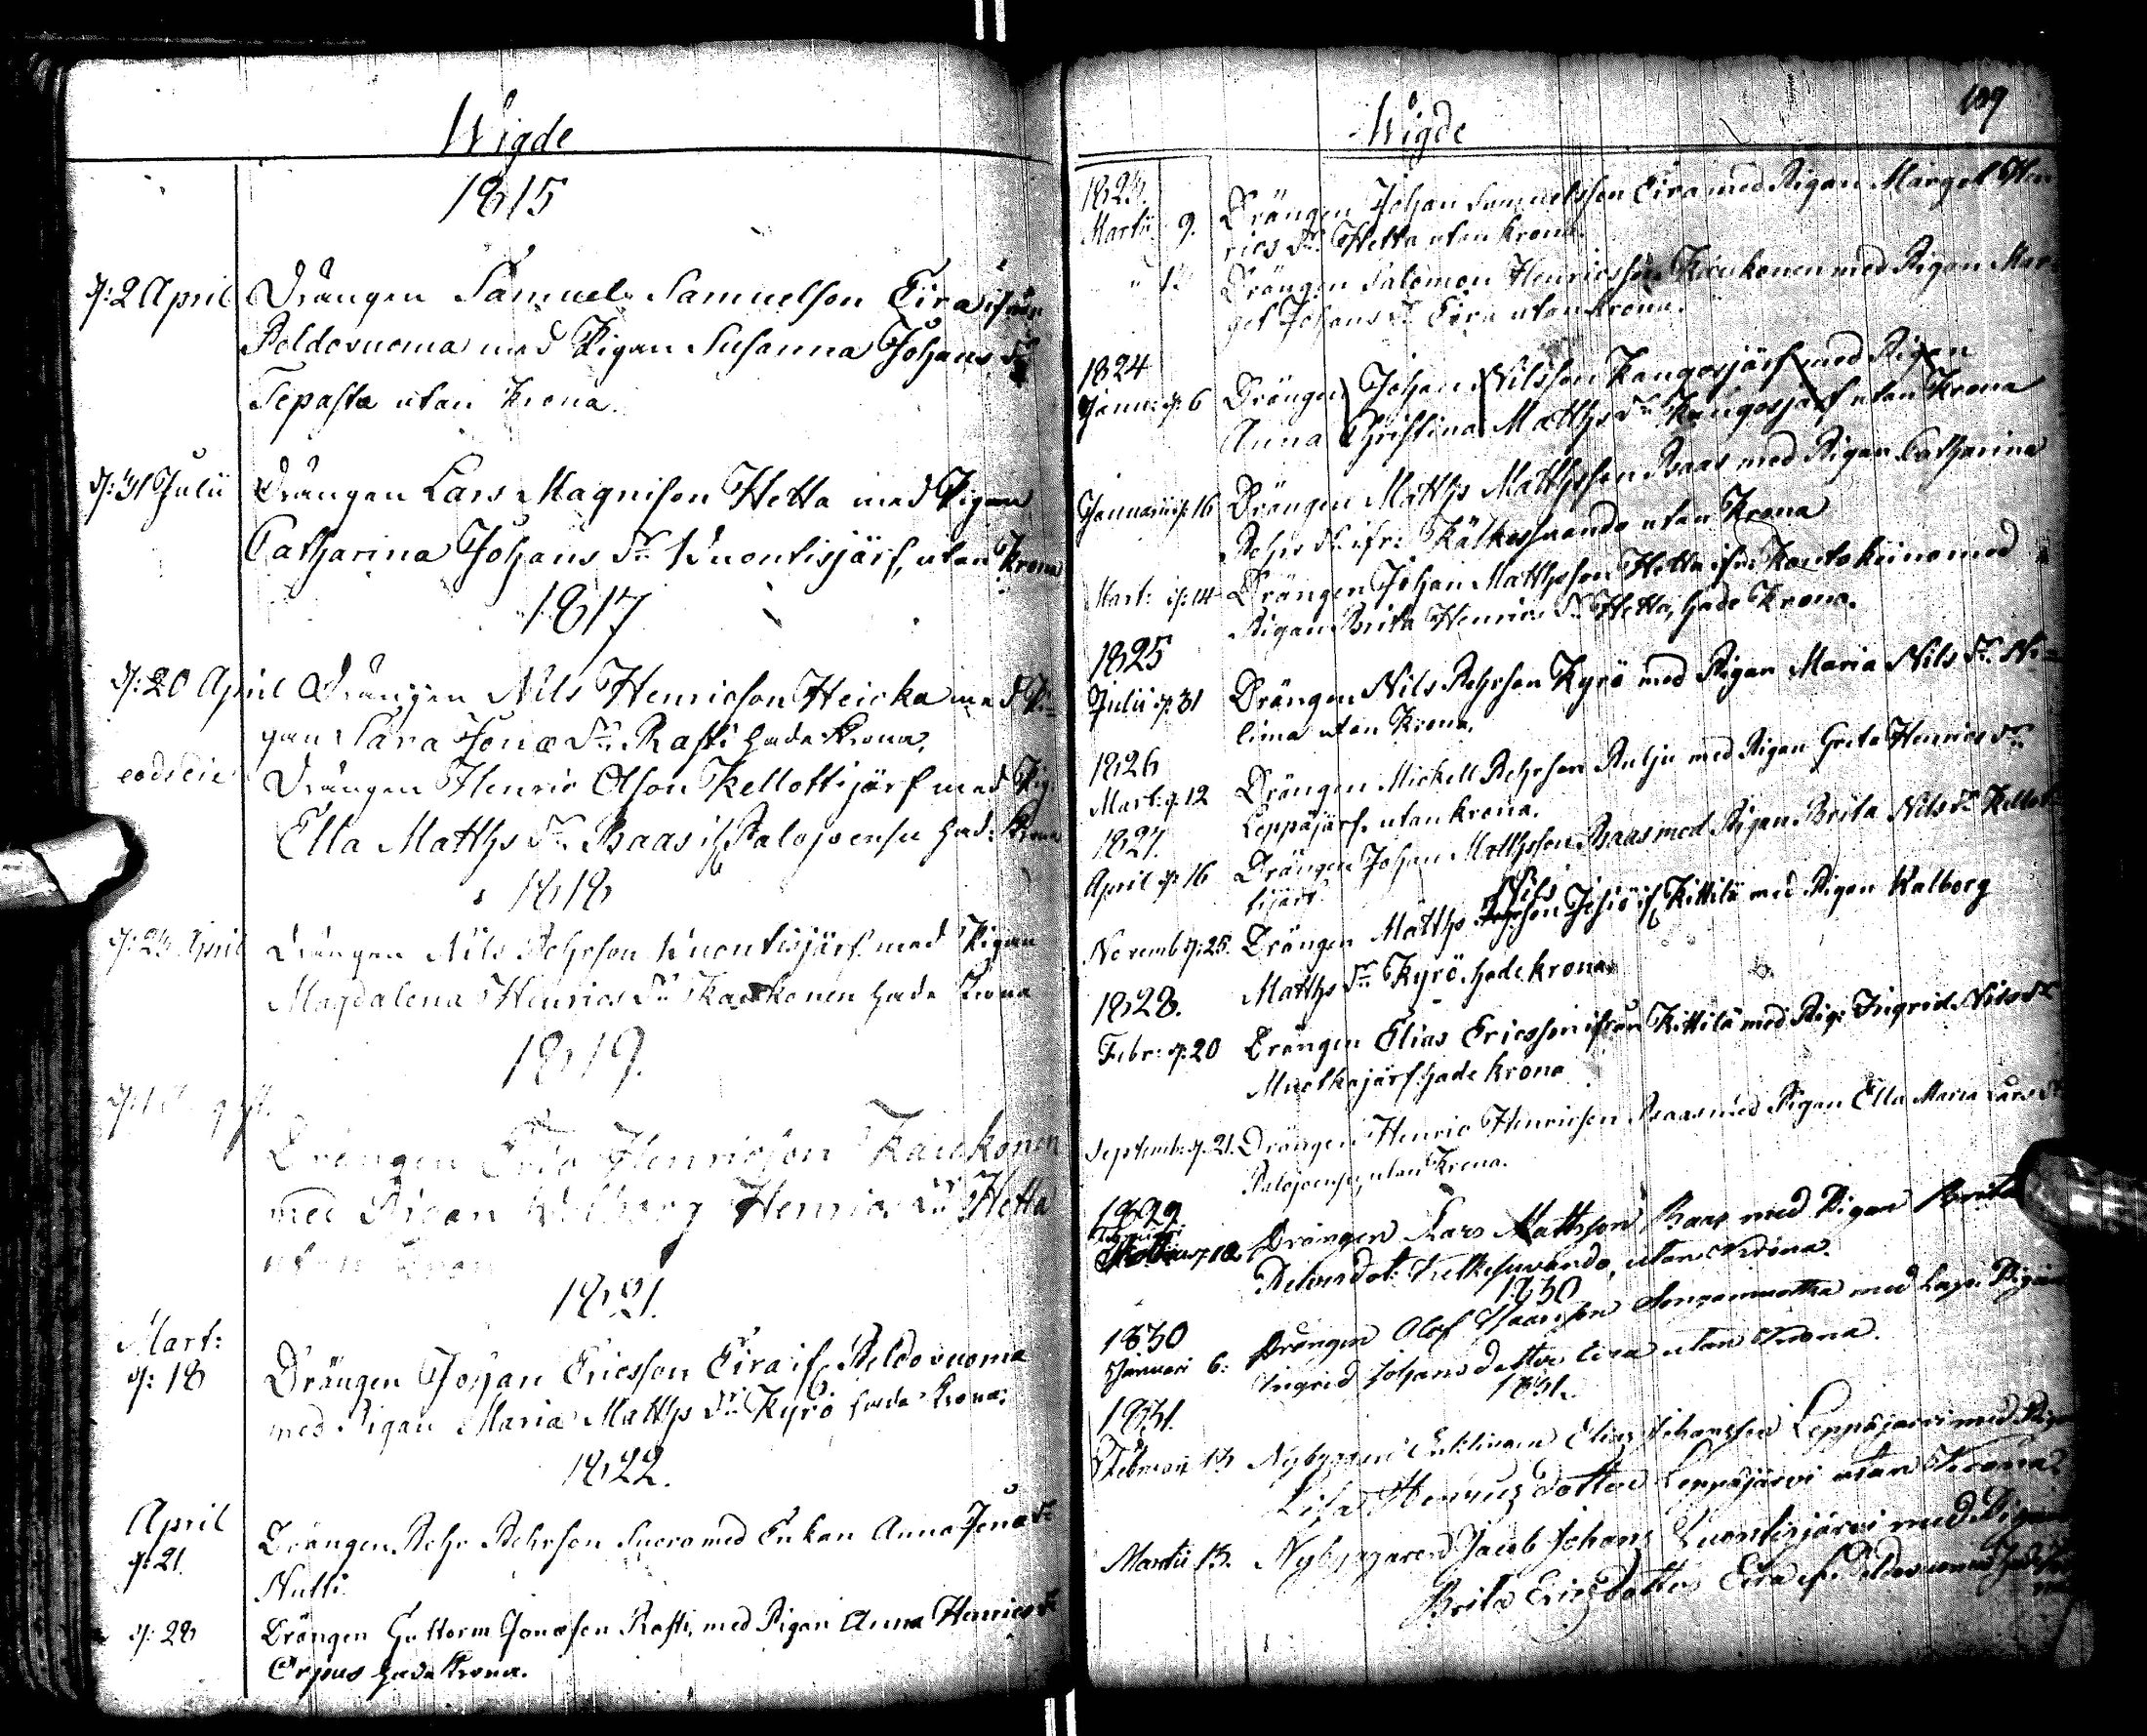 Wigde
1815
d: 2 April Drängen Samuel Samuelson Eira ifrån
Peldovuoma med Pigan Susanna Johans Dr
Tepasta utan Krona.
d: 31 Julii Drängen Lars Magnison Hetta med Pigan
Catharina Johans Dr Wuontisjärf, utan Krona
1817
d: 20 April Drängen Nils Henricson Heicka med Pi-
gan Sara Jonæ Dr Rasti hade Krona.
eod: die Drängen Henric Olson Kellottijärf med Pig:
Ella Matths Dr Baas if Palojoensu had: Krona
1818
d: 23 April Drängen Nils Pehrson Wuontisjärf med Pigan
Magdalena Henrics Dr Kaukonen hade Krona
1819.
Drängen Henricson Kaukonen
med Pigan Walborg Henrics Dr Hetta
utan Krona
1821.
Mart:
d: 18 Drängen Johan Ericsson Eira if Peldovuoma
med Pigan Maria Matths Dr Kyrö hade Krona.
1822.
April
d: 21. Drängen Pehr Pehrson Suero med Enkan Anna Jonæ Dr
Nutti.
d: 28 Drängen Guttorm Jonæson Rasti, med Pigan Anna Henrics Dr
Orpus hade Krona.
Wigde
109
1823.
Martii 9. Drängen Johan Samuelsson Eira med Pigan Marget Hen
rics Dr Hetta utan Krona.
Drängen Salomon Henricsson Kaukonen med Pigan Mar-
get Johans Dr Eira utan krona.
1824
Janu: d: 6 Drängen Johan Nilsson Kangosjärf med Pigan
Anna Christina Matths Dr Kangosjärf utan Krona
Januarii d: 16 Drängen Matths Matthsson Baas med Pigan Catharina
Pehrs Dr ifr: Kälkessuando utan Krona
Mart: d: 14 Drängen Johan Matthsson Hetta ifrån Koutokeino med
Pigan Brita Henrics Dr Hetta, hade Krona.
1825
Julii d: 31 Drängen Nils Pehrson Kyrö med Pigan Maria Nils Dr Ni-
lima utan Krona.
1826
Mart: d: 12 Drängen Mickell Pehrson Pulju med Pigan Greta Henrics Dr
Leppäjärf. utan krona.
1827.
April d: 16 Drängen Johan Matthsson Baas med Pigan Brita Nils Dr Kellot-
tijärf.
Nils
Novemb: d: 25. Drängen Matths Pehrson Jesiö if Kittilä med Pigan Walborg
Matths Dr Kyrö. hade krona.
1828.
Febr: d: 20 Drängen Elias Ericsson ifrån Kittilä med Pig: Ingrid Nils Dr
Muotkajärf. hade krona
Septemb: d: 21. Drängen Henric Henricson Baas med Pigan Ella Maria Lars Dr
Palojoensu, utan Krona.
1829
Drängen Lars Mathson Baas med Pigan Brita
Pehrsdot: Kelkesuvando, utan Krona.
1830
1830
Januari 6: Drängen Olof Isaacson Songamuotka med Lapp: Pigan
Ingrid Johans dotter Eira utan Krona.
1831.
1831.
Februari 13 Nybyggaren Enklingen Elias Johansson Leppäjärvi med Pigan
Lisa Henricsdotter Leppäjärvi utan Krona.
Martii 13. Nybyggaren Jacob Johans Wuontisjärvi med Pigan
Brita Ericsdotter Eira if. Peldovuoma hade kro
na